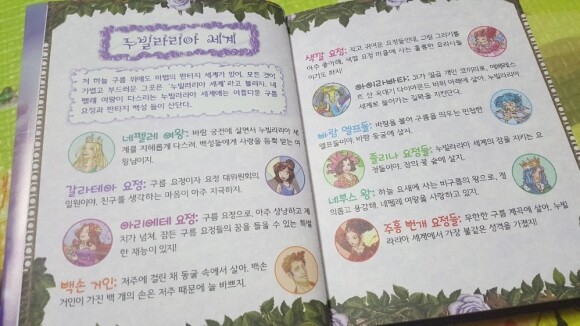 누빌라리아 세계
저 하늘 구름 위에도 마법의 판타지 세계가 있어. 모든 것이
가볍고 부드러운 그곳은 '누빌라리아 세계'라고 불리지. 네
펠레 여왕이 다스리는 누빌라리아 세계에는 아름다운 구름
요정과 판타지 백성 들이 산단다.
네펠레 여왕: 바람 궁전에 살면서 누빌라리아 세
계를 지혜롭게 다스려. 백성들에게 사랑을 듬뿍 받는 여
왕님이지.
갈라테아 요정: 구름 요정이자 요정 대위원회의
일원이야. 친구를 생각하는 마음이 아주 지극하지.
아리에테 요정: 구름 요정으로, 아주 상냥하고 재
치가 넘쳐. 잠든 구름 요정들의 꿈을 들을 수 있는 특별
한 재능이 있지!
백손 거인: 저주에 걸린 채 동굴 속에서 살아. 백손
거인이 가진 백 개의 손은 저주 때문에 늘 바쁘지.
색깔 요정: 작고 귀여운 요정들인데, 그림 그리기를
아주 좋아해. 색깔 요정 마을에 사는 훌륭한 요리사들
이기도 하지!
아이라바타: 고귀한 얼음 개인 코끼리로, 에메레스
트 산 꼭대기 다이아몬드 바위 아래에 살아. 누빌라리아
세계로 들어가는 길목을 지킨단다.
바람 엘프들: 바람을 불어 구름을 띄우는 민첩한
엘프들이야. 바람 동굴에 살지.
폴리나 요정들: 누빌라리아 세계의 잠을 지키는 요
정들이야. 잠의 꽃 숲에 살지.
네부스 왕: 하늘 요새에 사는 비구름의 왕으로, 정
의롭고 용감해. 네펠레 여왕을 사랑하고 있지.
주홍 번개 요정들: 무한한 구름 계곡에 살아. 누빌
라리아 세계에서 가장 불같은 성격을 가졌지!